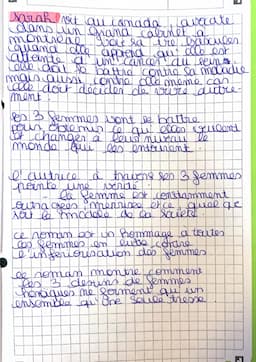 Sarah vit au canada, avocate
dans un grand cabinet a
montréal voit sa vie basculer
quand elle apprend qu'elle est
atteinte d'un cancer du sein.
elle doit se battre contre sa maladie
mais aussi contre elle même car
elle doit décider de vivre autre-
ment.
Les 3 femmes vont se battre
pour obtenir ce qu'elles veulent
et changer a leur niveau le
monde qui les entourent.
L'autrice a travers ses 3 femmes
pointe une vérité
- la femme est constamment
outragées, menacée etc, quelque
soit le modèle de la société.
ce roman est un hommage a toutes
les femmes en lutte contre
l'infériorisation des femmes
ce roman montre comment
les 3 destins de femmes
héroïques ne forment qu'un
ensemble qu'une seule tresse